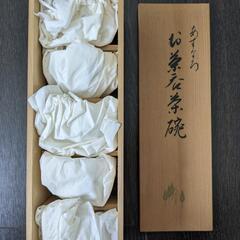 あすなろ
お茶呑茶碗